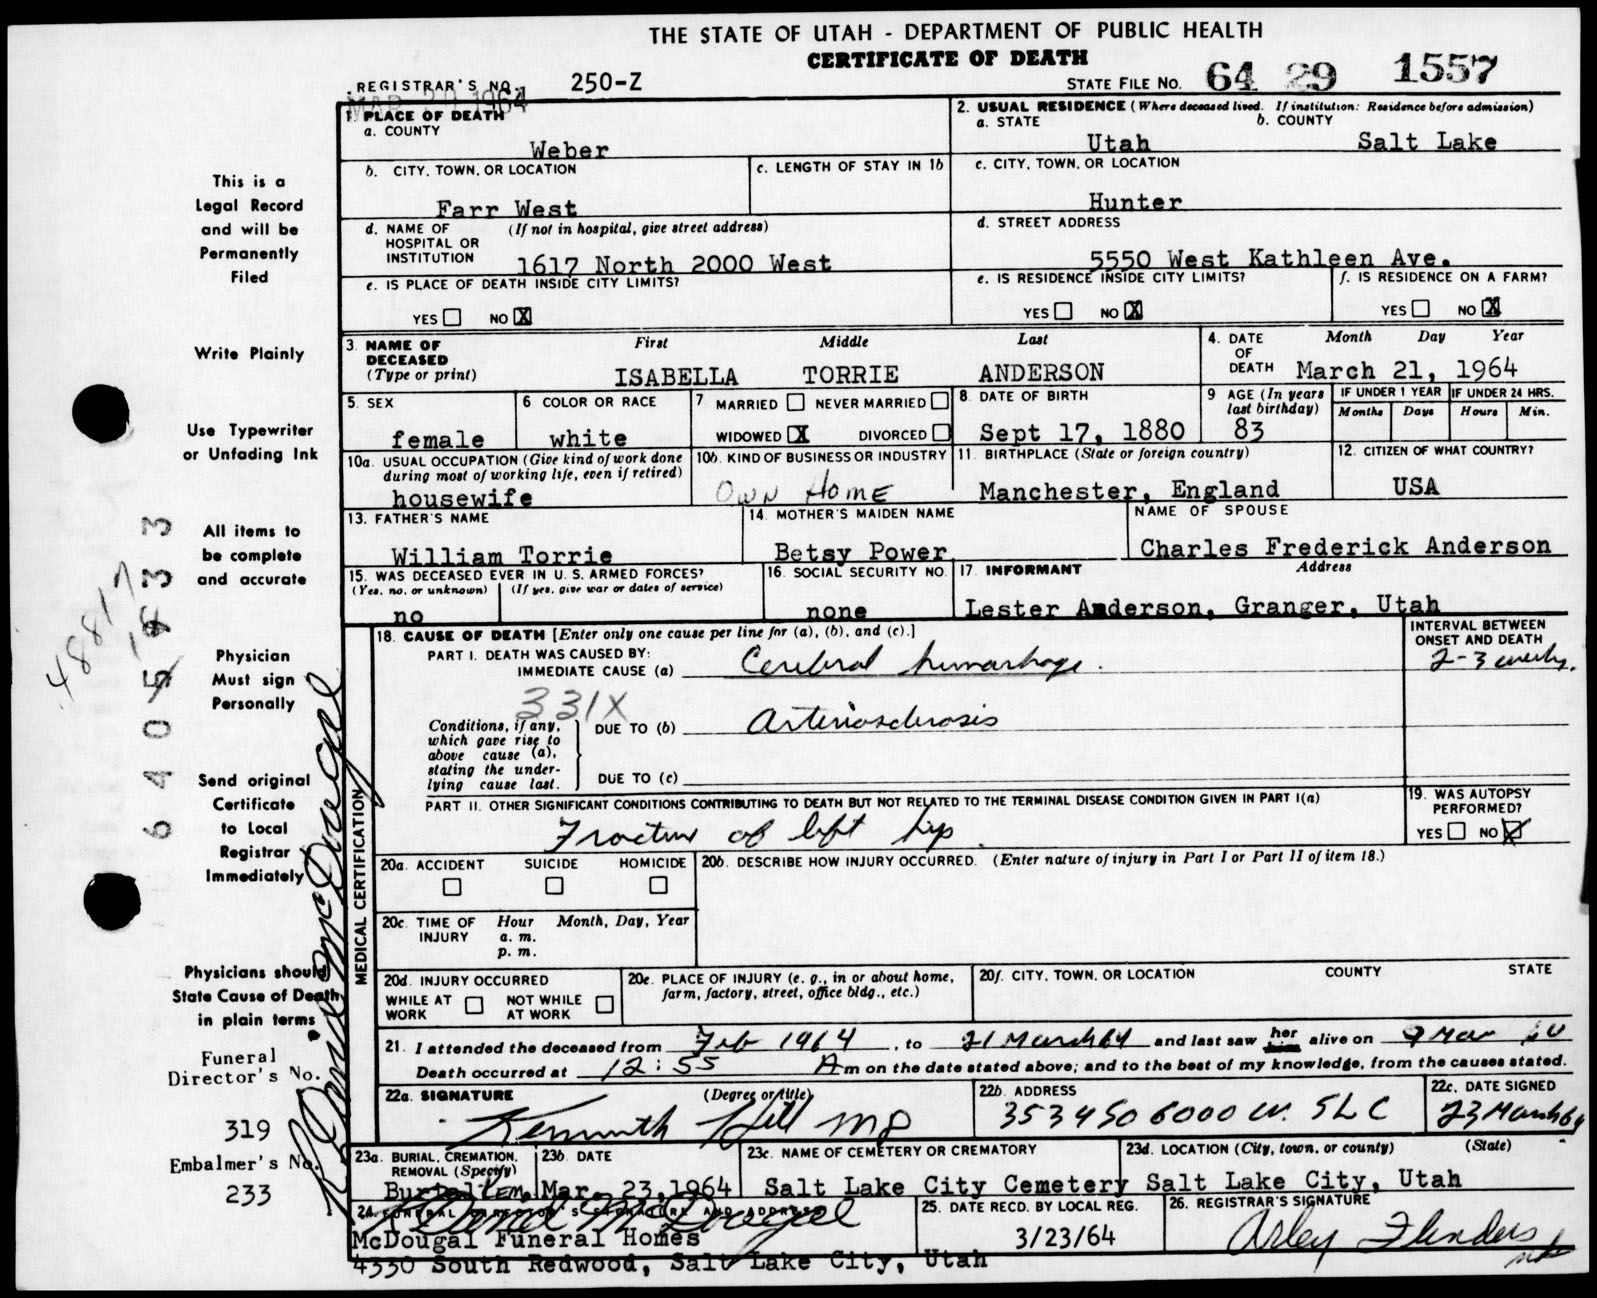 THE STATE OF UTAH - DEPARTMENT OF PUBLIC HEALTH
CERTIFICATE OF DEATH
REGISTRAR'S NO. 250-Z
STATE FILE NO. 64 29 1557
MAR 1964
1. PLACE OF DEATH
a. COUNTY
Weber
2. USUAL RESIDENCE (Where deceased lived. If institution: Residence before admission)
a. STATE b. COUNTY
Utah Salt Lake
b. CITY, TOWN, OR LOCATION
Farr West
c. LENGTH OF STAY IN 1b
c. CITY, TOWN, OR LOCATION
Hunter
d. NAME OF HOSPITAL OR INSTITUTION (If not in hospital, give street address)
1617 North 2000 West
d. STREET ADDRESS
5550 West Kathleen Ave.
e. IS PLACE OF DEATH INSIDE CITY LIMITS?
YES NO X
e. IS RESIDENCE INSIDE CITY LIMITS?
YES NO X
f. IS RESIDENCE ON A FARM?
YES NO X
3. NAME OF DECEASED (Type or print)
First Middle Last
ISABELLA TORRIE ANDERSON
4. DATE OF DEATH
Month Day Year
March 21, 1964
5. SEX
female
6 COLOR OR RACE
white
7 MARRIED NEVER MARRIED
WIDOWED X DIVORCED
8. DATE OF BIRTH
Sept 17, 1880
9 AGE (In years last birthday)
83
IF UNDER 1 YEAR
Months Days
IF UNDER 24 HRS.
Hours Min.
10a. USUAL OCCUPATION (Give kind of work done during most of working life, even if retired)
housewife
10b. KIND OF BUSINESS OR INDUSTRY
OWN HOME
11. BIRTHPLACE (State or foreign country)
Manchester, England
12. CITIZEN OF WHAT COUNTRY?
USA
13. FATHER'S NAME
William Torrie
14. MOTHER'S MAIDEN NAME
Betsy Power
NAME OF SPOUSE
Charles Frederick Anderson
15. WAS DECEASED EVER IN U.S. ARMED FORCES?
(Yes, no, or unknown) (If yes, give war or dates of service)
no
16. SOCIAL SECURITY NO.
none
17. INFORMANT Address
Lester Anderson, Granger, Utah
MEDICAL CERTIFICATION
18. CAUSE OF DEATH [Enter only one cause per line for (a), (b), and (c).]
INTERVAL BETWEEN ONSET AND DEATH
PART I. DEATH WAS CAUSED BY:
IMMEDIATE CAUSE (a) Cerebral hemorrhage. 2-3 weeks.
331X
Conditions, if any, which gave rise to above cause (a), stating the underlying cause last.
DUE TO (b) Arteriosclerosis
DUE TO (c)
PART II. OTHER SIGNIFICANT CONDITIONS CONTRIBUTING TO DEATH BUT NOT RELATED TO THE TERMINAL DISEASE CONDITION GIVEN IN PART I(a)
Fracture of left hip.
19. WAS AUTOPSY PERFORMED?
YES NO X
20a. ACCIDENT SUICIDE HOMICIDE
20b. DESCRIBE HOW INJURY OCCURRED. (Enter nature of injury in Part I or Part II of item 18.)
20c. TIME OF INJURY Hour Month, Day, Year
a. m.
p. m.
20d. INJURY OCCURRED
WHILE AT WORK NOT WHILE AT WORK
20e. PLACE OF INJURY (e. g., in or about home, farm, factory, street, office bldg., etc.)
20f. CITY, TOWN, OR LOCATION COUNTY STATE
21. I attended the deceased from Feb 1964, to 21 March 64 and last saw her him alive on 9 Mar
Death occurred at 12:55 A m on the date stated above; and to the best of my knowledge, from the causes stated.
22a. SIGNATURE (Degree or title)
Kenneth Hill MD
22b. ADDRESS
3534 So 6000 W. SLC
22c. DATE SIGNED
23 March 64
23a. BURIAL, CREMATION, REMOVAL (Specify)
Burial
23b. DATE
Mar. 23, 1964
23c. NAME OF CEMETERY OR CREMATORY
Salt Lake City Cemetery
23d. LOCATION (City, town, or county) (State)
Salt Lake City, Utah
24. FUNERAL DIRECTOR'S SIGNATURE AND ADDRESS
McDougal Funeral Homes
4330 South Redwood, Salt Lake City, Utah
25. DATE RECD. BY LOCAL REG.
3/23/64
26. REGISTRAR'S SIGNATURE
Arley Flinders
This is a
Legal Record
and will be
Permanently
Filed
Write Plainly
Use Typewriter
or Unfading Ink
All items to
be complete
and accurate
Physician
Must sign
Personally
Send original
Certificate
to Local
Registrar
Immediately
Physicians should
State Cause of Death
in plain terms
Funeral
Director's No.
319
Embalmer's No.
233
48817